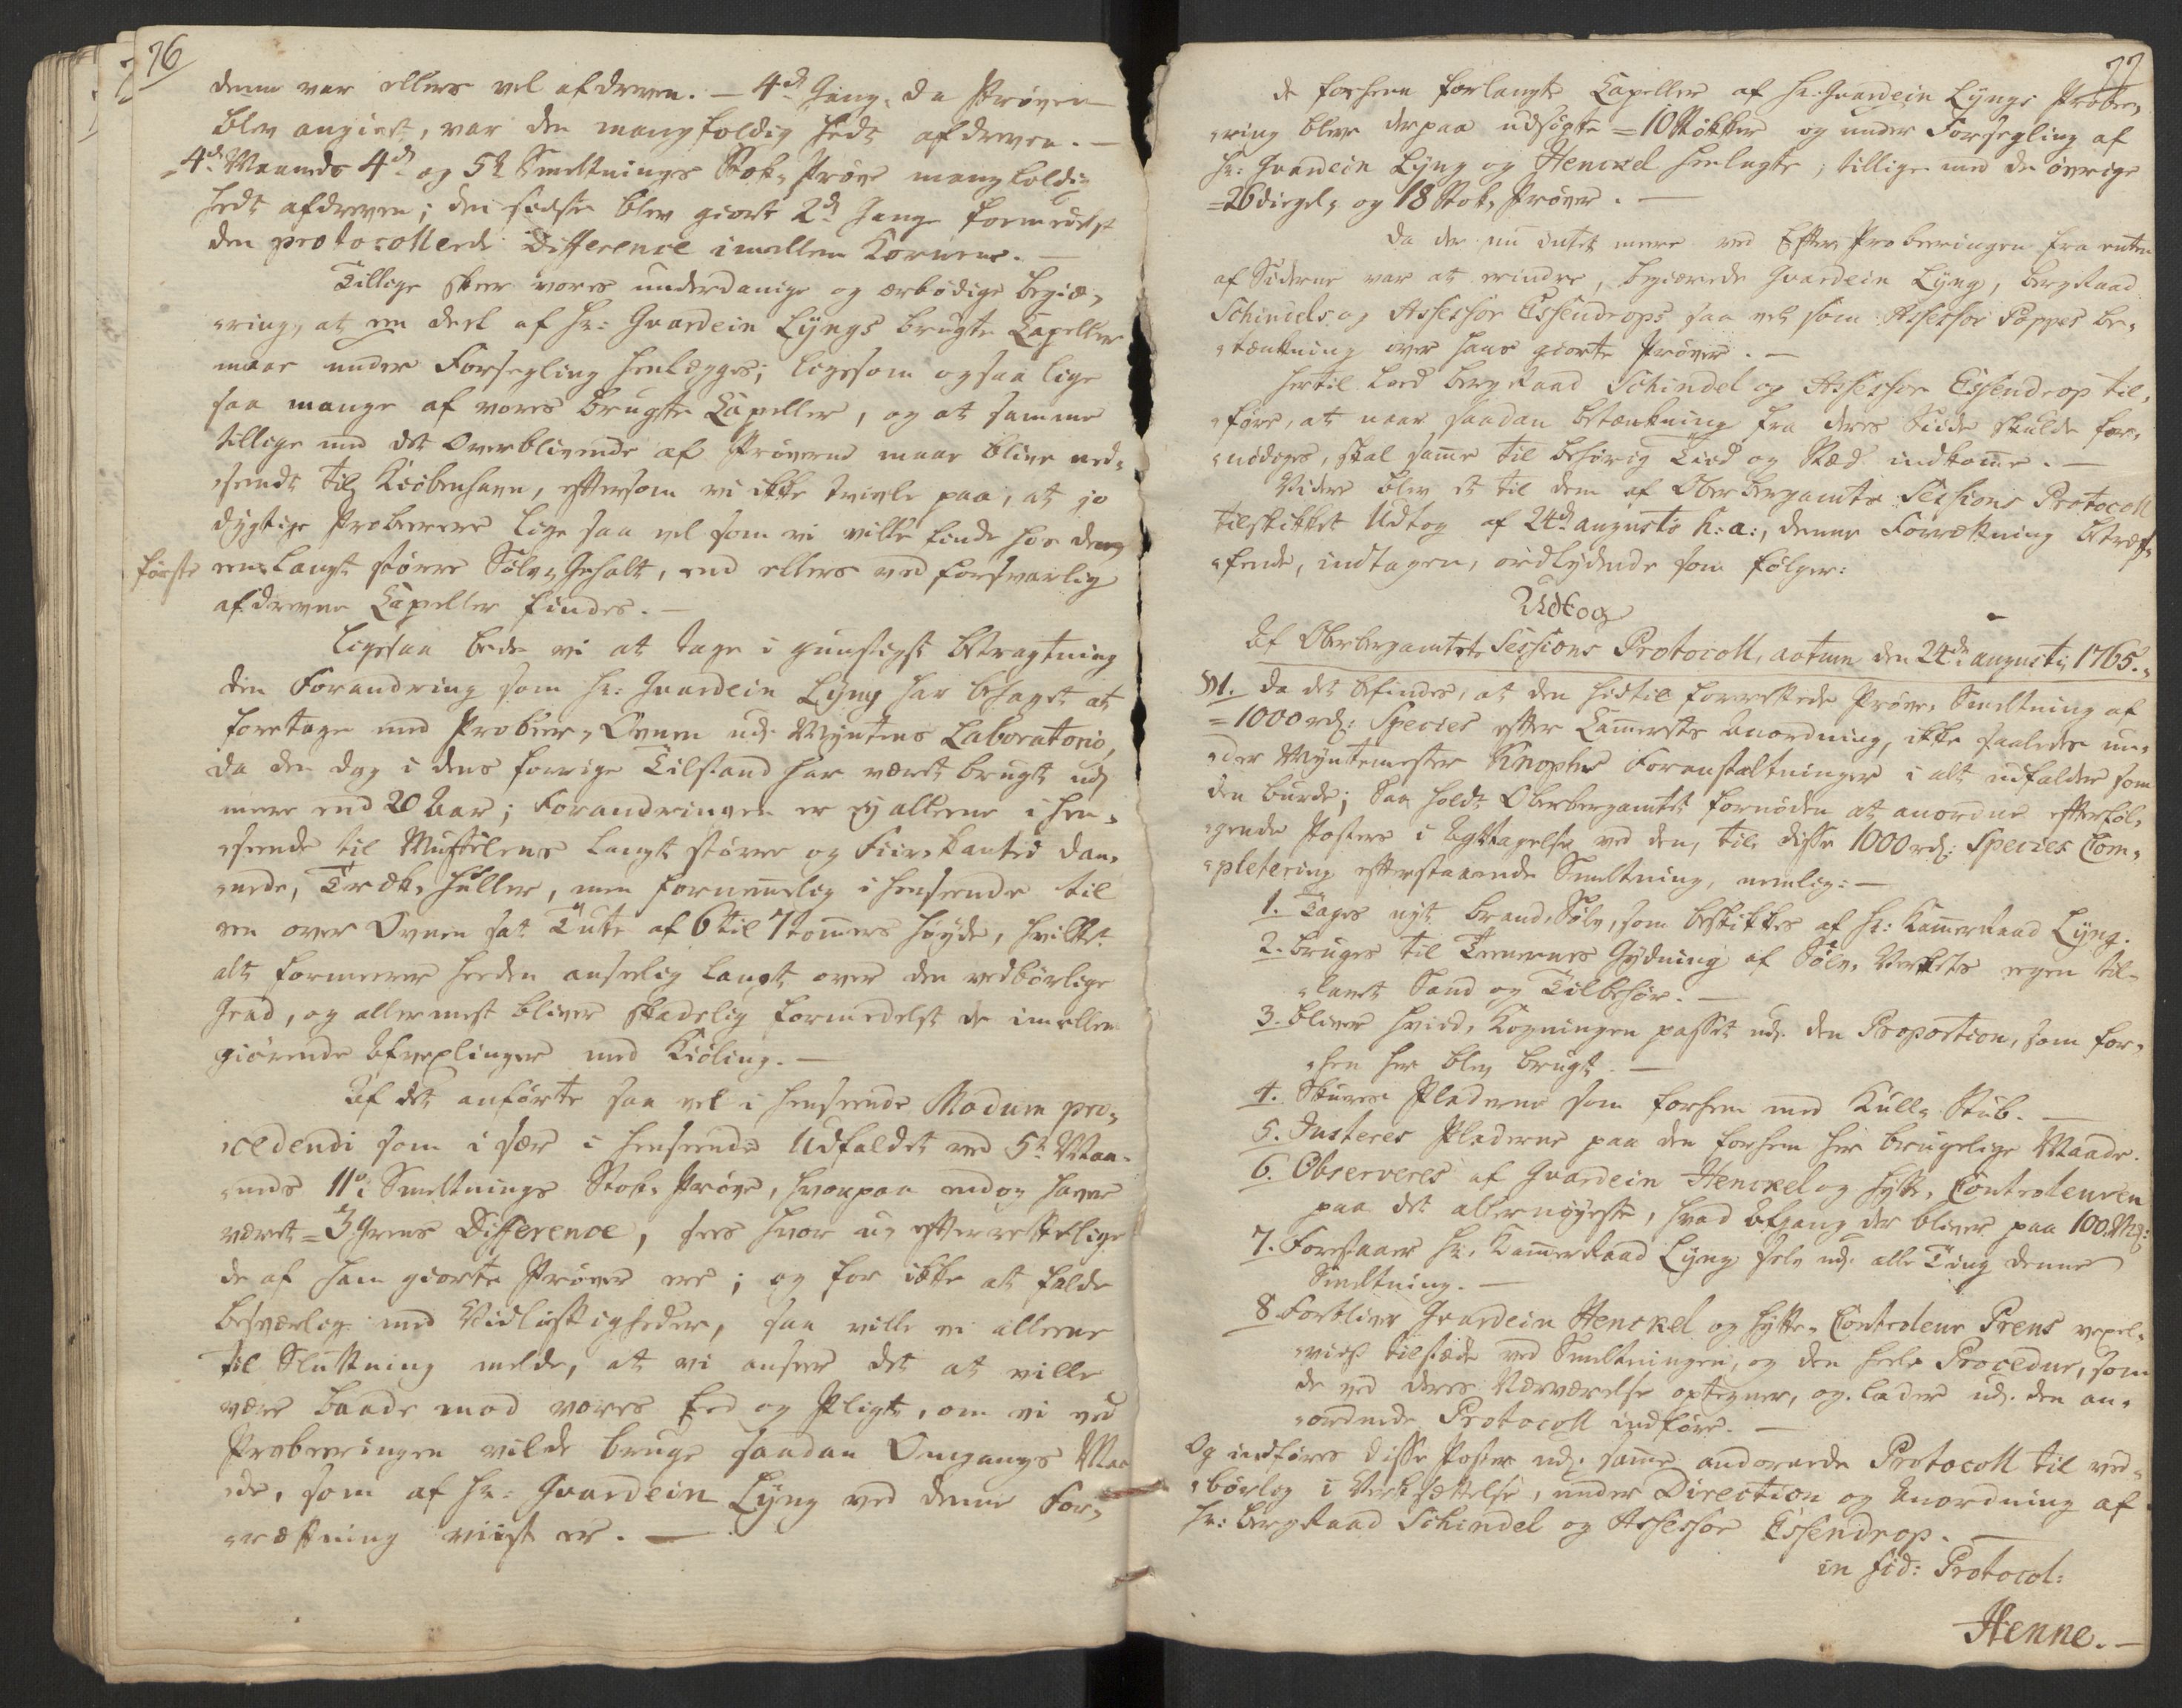 76
denne var ellers vel afdreven. — 4de Gang, da Prøven
blev angivet, var den mangfoldig hedt afdreven. —
4de Maaneds 4de og 5te Smeltnings Stok, Prøve mangfoldig
hedt afdreven; den sidste blev giort 2de Gange formedelst
den protocollerede Difference imellem Kornene. —
Tillige skeer vores underdanige og ærbødige begiæ,
„ring, at en deel af Hr: Gvardein Lyngs brugte Capeller
maae under Forsegling henlægges; ligesom ogsaa lige
saa mange af vores brugte Capeller, og at samme
tillige med det Overblivende af Prøverne maae blive ned,
„sendt til Kiøbenhavn, eftersom vi ikke tvivle paa, at jo
dygtige Proberere lige saa vel som vi ville finde hos dem
første een langt større Sølv, Gehalt, end ellers ved forsvarlig
afdrevne Capeller findes. —
Ligesaa bede vi at tage i gunstigst betragtning
den Forandring som Hr: Gvardein Lyng har behaget at
foretage med Probeer, Ovnen udj Myntens Laboratorio,
da den dog i dens forrige Tilstand har været brugt udj
meere end 20 Aar; Forandringen er ej alleene i hen,
„seende til Muffelens langt større og Fiirkanted dan,
„nede, Træk, Huller, men fornemmelig i henseende til
een over Ovnen sat Tute af 6 til 7 tommers høyde, hvilket
alt formerer heeden anseelig langt over den vedbørlige
Grad, og allermest bliver skadelig formedelst de imellem
giørende Afvexlinger med Kiøling. —
Af det anførte saa vel i henseende Modum pro,
„cedendi som i sær i henseende Udfaldet ved 5te Maa,
„neds 11te Smeltnings Stok, Prøve, hvorpaa endog haver
været = 3 Grens Difference, sees hvor u, efterrettelige
de af ham giorte Prøver ere; og for ikke at falde
besværlig med Vidløftigheder, saa ville vi alleene
til Slutning melde, at vi anseer det at ville
være baade mod vores Eed og Pligt, om vi ved
Probeeringen vilde bruge saadan Omgangs Maa
„de, som af Hr: Gvardein Lyng ved denne For,
„rætning viist er. —
77
de forhen forlangte Capeller af Hr: Gvardein Lyngs Probee,
„ring blev derpaa udsøgte = 10 Støkker og under Forsegling af
Hr: Gvardein Lyng og Henckel henlagte, tillige med de øvrige
= 26 diegel, og 18 Stok, Prøver. —
Da der nu intet mere ved Efter, Probeeringen fra enten
af Siderne var at erindre, begiærede Gvardein Lyng, Bergraad
Schindels og Assessor Essendrops saa vel som Assessor Poppes be,
„tænkning over hans giorte Prøver. —
Hertil loed Bergraad Schindel og Assessor Essendrop til,
„føre, at naar saadan betænkning fra deres Side skulde for,
„nødiges, skal samme til behørig Tiid og Stæd indkomme. —
Videre blev et til dem af Oberbergamts Sessions Protocoll
tilskikket Udtog af 24de Augusti h: a:, denne Forrætning betref,
„fende, indtagen, ordlydende som følger:
Udtog
Af Oberbergamtets Sessions Protocoll, actum den 24de Augusti 1765.
№1. Da det befindes, at den hidtil forrettede Prøve, Smeltning af
= 1000 rd: Species efter Cammerets Anordning, ikke saaledes un,
„der Myntemester Knophs Foranstaltninger i alt udfalder som
den burde; Saa holdt Oberbergamtet fornøden at anordne efterføl,
„gende Poster i Agttagelse ved den, til disse 1000 rd: Species Com,
„pletering efterstaaende Smeltning, nemlig: —
1. Tages nyt brand, Sølv, som beskikkes af Hr: Kammerraad Lyng.
2. Bruges til Teenernes Gydning af Sølv, Verkets egen til,
„lavet Sand og Tilbehør. —
3. Bliver Hviid, Kogningen passet udj den Proportion, som for,
„hen her blev brugt. —
4. Skures Pladerne som forhen med Kull, Stüb. —
5. Justeres Pladerne paa den forhen her brugelige Maade.
6. Observeres af Gvardein Henckel og Hytte, Controleuren
paa det allernøyeste, hvad Afgang der bliver paa 100 Mk:
7. Forestaaer Hr. Kammerraad Lyng selv udj alle Ting denne
Smeltning. —
8. Forbliver Gvardein Henckel og Hytte, Controleur Prens vexel,
„viis tilstæde ved Smeltningen, og den heele Procedur, som
de ved deres Nærværelse optegner, og lader udj den an,
„ordnede Protocoll indføre. —
Og indføres disse Poster udj samme anordnede Protocoll til ved,
„børlig i Verksættelse, under Direction og Anordning af
Hr: Bergraad Schindel og Assessor Essendrop. —
in fid: Protocol:
Henne. —